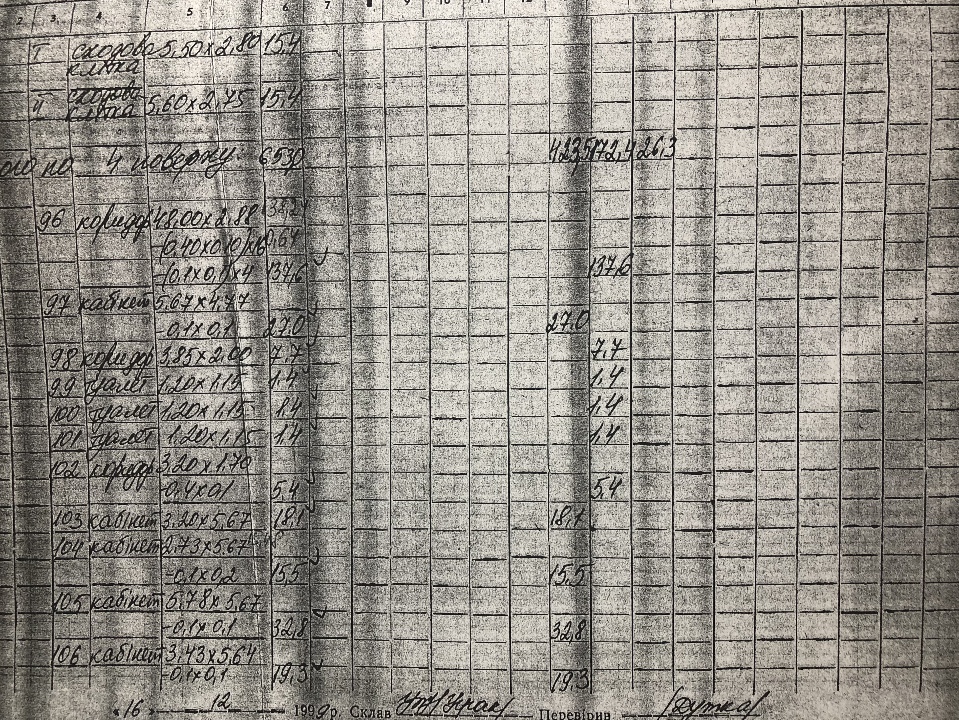 2 3 4 5 6 7 8 9 10 11 12
I сходова 5,50х2,80 15,4
клітка
II сходова
клітка 5,60х2,75 15,4
ого по 4 поверху 653,0 423,5 172,4 26,3
96 коридор 48,00х2,88
(0,40х0,10)х16 0,64
-(0,1х0,1)х4 137,6 137,6
97 кабінет 5,67х4,77
-0,1х0,1 27,0 27,0
98 коридор 3,85х2,00 7,7 7,7
99 туалет 1,20х1,15 1,4 1,4
100 туалет 1,20х1,15 1,4 1,4
101 туалет 1,20х1,15 1,4 1,4
102 коридор 3,20х1,70
-0,4х0,1 5,4 5,4
103 кабінет 3,20х5,67 18,1 18,1
104 кабінет 2,73х5,67
-0,1х0,2 15,5 15,5
105 кабінет 5,78х5,67
-0,1х0,1 32,8 32,8
106 кабінет 3,43х5,64
-0,1х0,1 19,3 19,3
«16 » 12 1999 р. Склав Перевірив /Дутка/